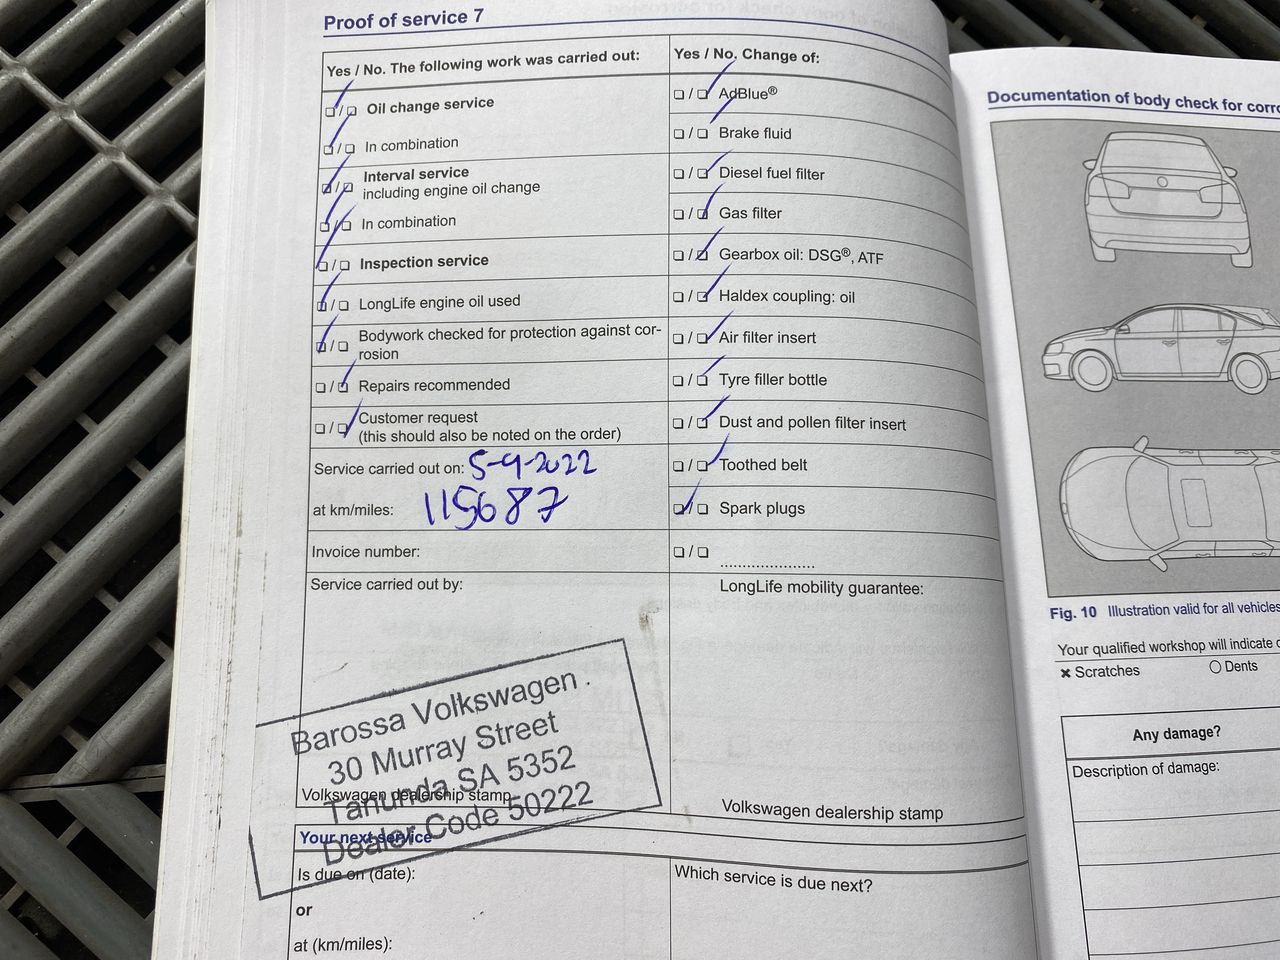 Proof of service 7
Yes / No. The following work was carried out:
☐/☐ Oil change service
☐/☐ In combination
☐/☐ Interval service
including engine oil change
☐/☐ In combination
☐/☐ Inspection service
☐/☐ LongLife engine oil used
☐/☐ Bodywork checked for protection against cor-
rosion
☐/☐ Repairs recommended
☐/☐ Customer request
(this should also be noted on the order)
Service carried out on: 5-9-2022
at km/miles: 115687
Invoice number:
Service carried out by:
Barossa Volkswagen
30 Murray Street
Tanunda SA 5352
Dealer Code 50222
Volkswagen dealership stamp
Yes / No. Change of:
☐/☐ AdBlue®
☐/☐ Brake fluid
☐/☐ Diesel fuel filter
☐/☐ Gas filter
☐/☐ Gearbox oil: DSG®, ATF
☐/☐ Haldex coupling: oil
☐/☐ Air filter insert
☐/☐ Tyre filler bottle
☐/☐ Dust and pollen filter insert
☐/☐ Toothed belt
☐/☐ Spark plugs
☐/☐ ......................
LongLife mobility guarantee:
Volkswagen dealership stamp
Your next service
Is due on (date):
or
at (km/miles):
Which service is due next?
Documentation of body check for
Fig. 10 Illustration valid for all vehicles
Your qualified workshop will indicate
× Scratches
○ Dents
Any damage?
Description of damage: